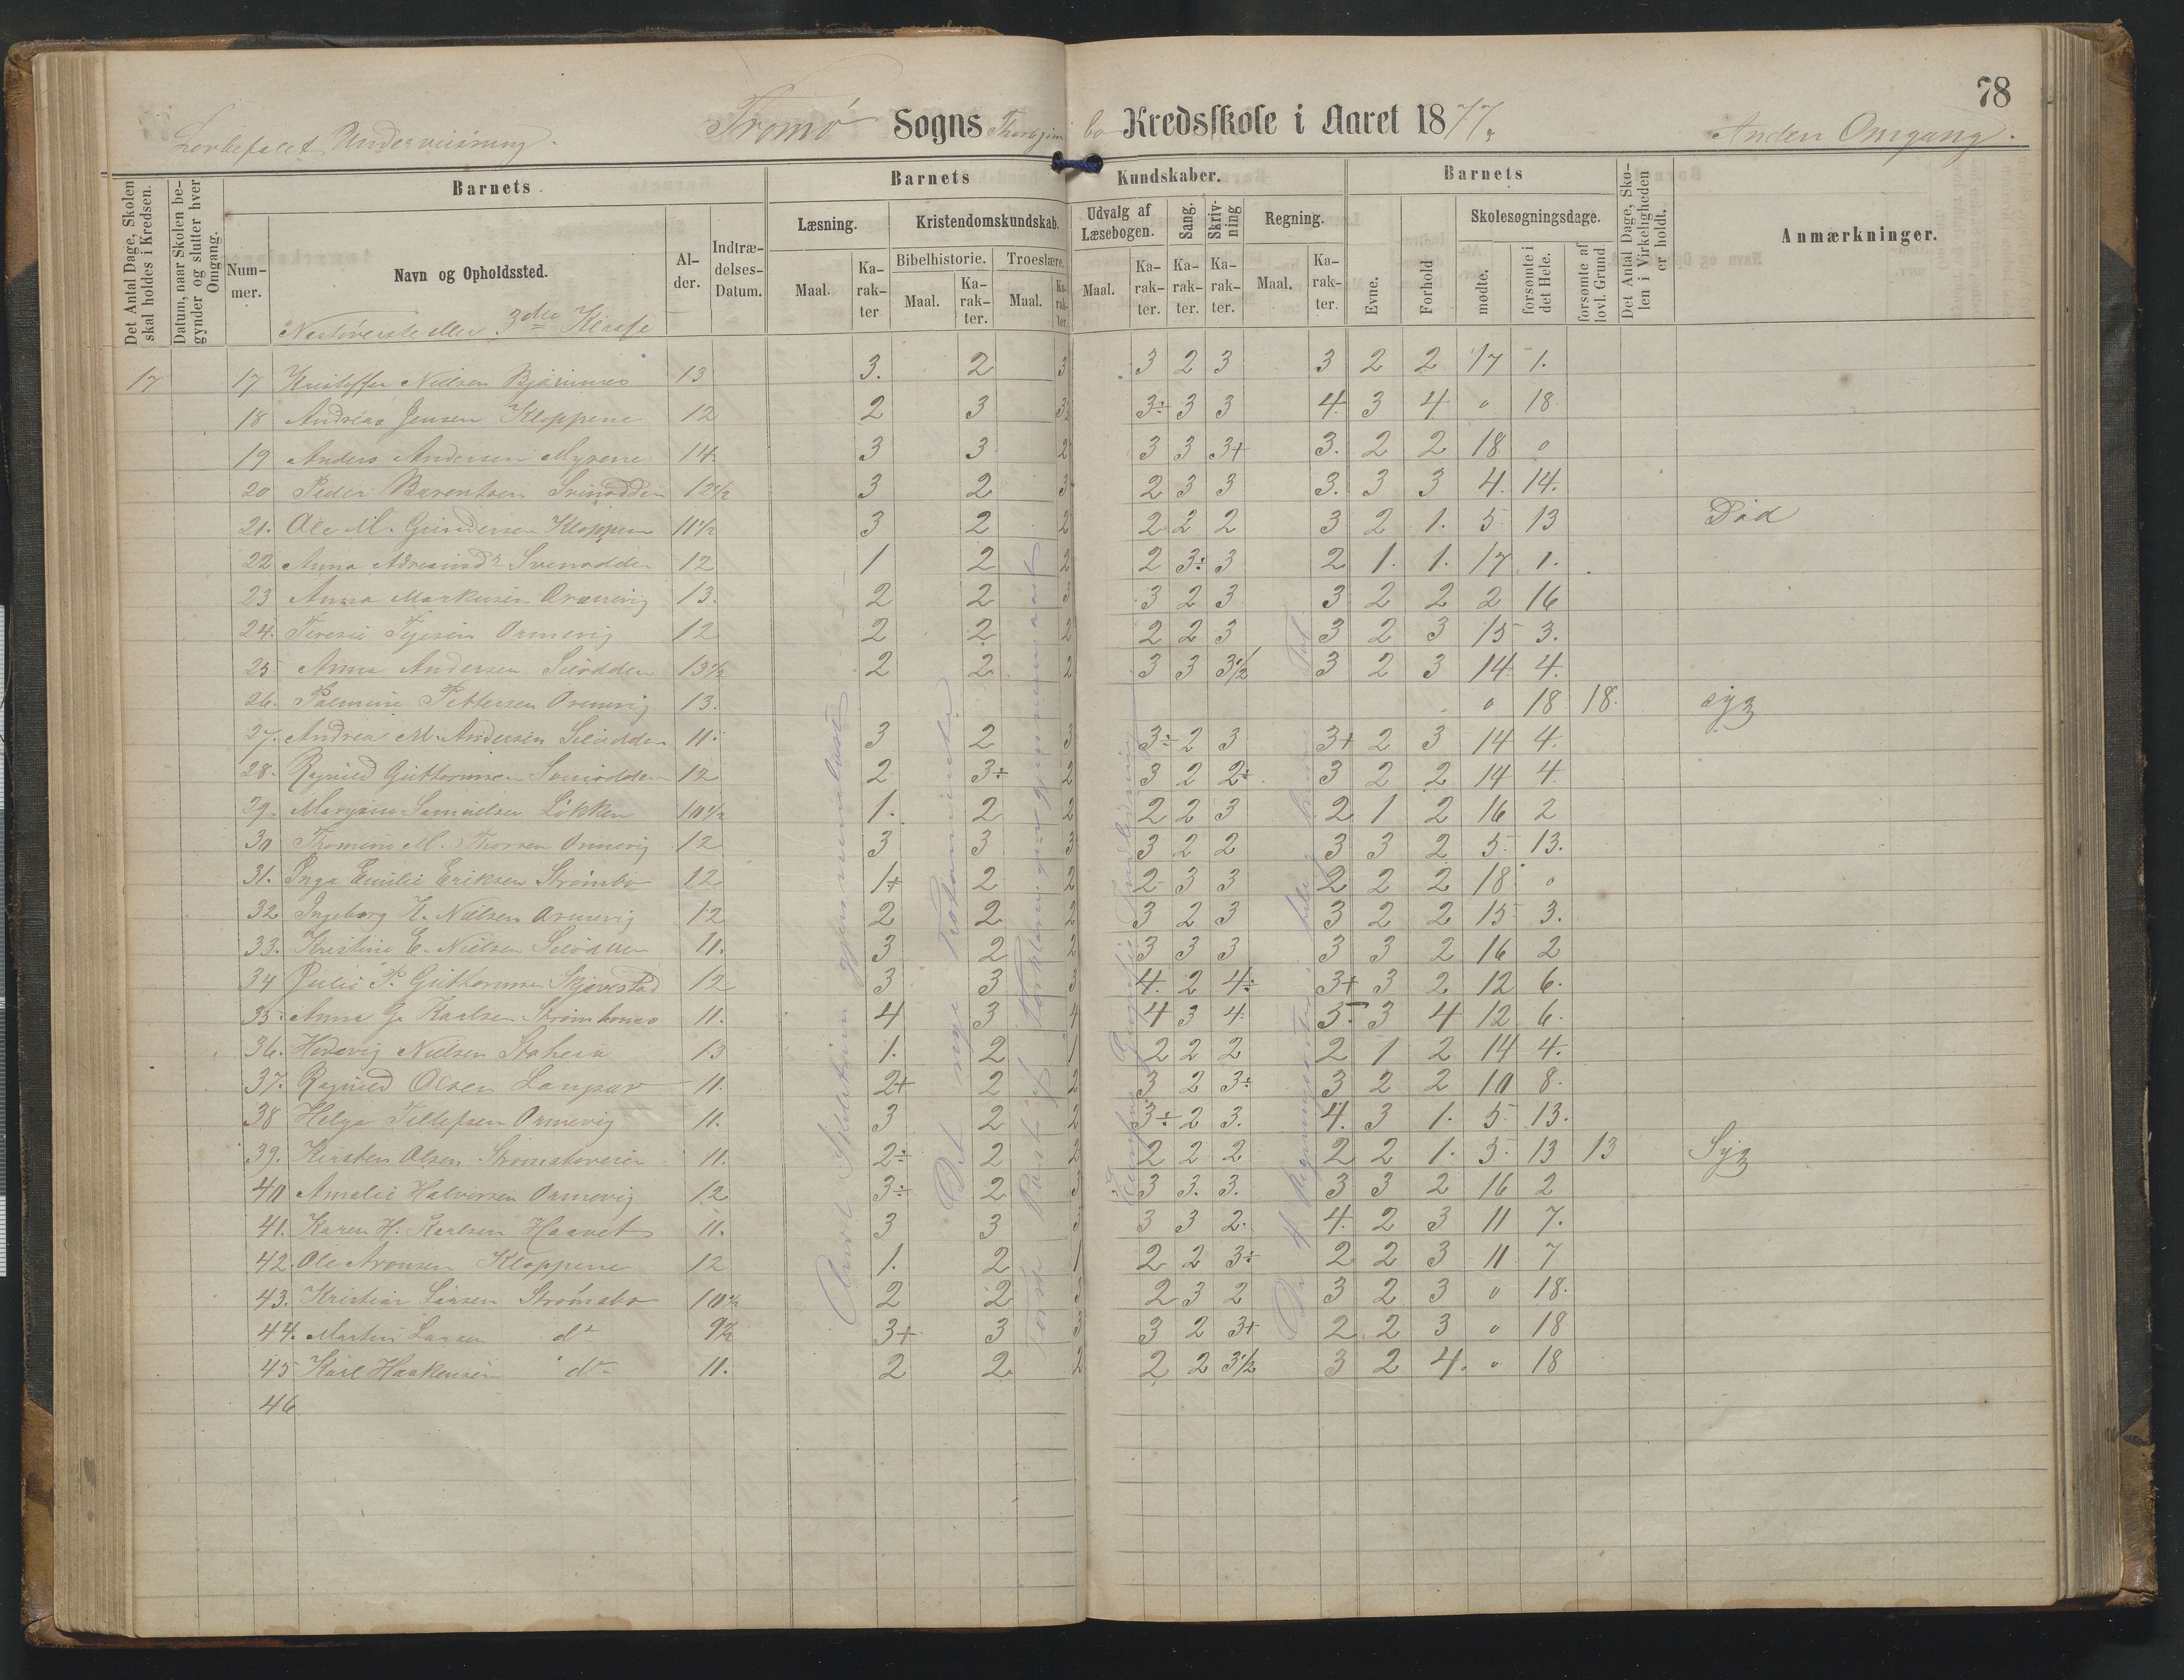 78
Lovbefalet Undervisning.
Tromø Sogns Kredsskole i Aaret 1877.
Anden Omgang.
Det Antal Dage, Skolen skal holdes i Kredsen.
Datum, naar Skolen begynder og slutter hver Omgang.
Barnets
Barnets Kundskaber.
Barnets
Det Antal Dage, Skolen i Virkeligheden er holdt.
Anmærkninger.
Nummer.
Navn og Opholdssted.
Alder.
Indtrædelses-Datum.
Læsning.
Kristendomskundskab.
Udvalg af Læsebogen.
Sang.
Skrivning
Regning.
Evne.
Forhold
Skolesøgningsdage.
Bibelhistorie.
Troeslære.
Maal.
Karakter
Maal.
Karakter.
Maal.
Karakter.
Maal.
Karakter.
Karakter.
Karakter.
Maal.
Karakter.
mødte.
forsømte i det Hele.
forsømte af lovl. Grund.
Nestøverste eller 3die Klasse
17 17 Kristoffer Nielsen Bjørnnes 13 3. 2 3 3 2 3 3 2 2 17 1.
18 Andreas Jensen Kloppene 12 2 3 3 3÷ 3 3 4. 3 4 0 18.
19 Anders Andersen Myrene 14. 3 3 2 3 3 3+ 3. 2 2 18 0
20 Peder Barentsen 12½ 3 2 3 2 3 3 3. 3 3 4. 14.
21. Ole M. Gundersen Kloppen 11½ 3 2 2 2 2 2 3 2 1. 5 13 Død
22 Anna 12 1 2 2 2 3÷ 3 2 1. 1. 17 1.
23 Anna Markusen Ormevig 13. 2 2 3 3 2 3 3 2 2 2 16
24. Teresie Ormevig 12 2 2 2 2 2 3 3 2 3 15 3.
25 Anna Andersen 13½ 2 2 2 3 3 3½ 3 2 3 14 4.
26. Palmine Pettersen Ormevig 13. 0 18 18. syg
27. Andrea M. Andersen 11. 3 2 3 3÷ 2 3 3+ 2 3 14 4.
28. Ragnild Guttormsen 12 2 3÷ 2 3 2 2÷ 3 2 2 14 4.
29. Samuelsen Løkken 10½ 1. 2 2 2 2 3 2 1 2 16 2
30 Thomine M. Thorsen Ormevig 12 3 3 3 3 2 2 3 3 2 5 13.
31. Inga Emilie Eriksen Strømbo 12 1+ 2 2 2 3 3 2 2 2 18 0
32 Ingeborg K. Nielsen Ormevig 12 2 2 2 3 2 3 3 2 2 15 3.
33. Kristine E. Nielsen 11. 3 2 2 3 3 3 3 3 2 16 2
34 Julie P. Guttormsen Skjevestad 12 3 3 3 4. 2 4÷ 3+ 3 2 12 6.
35. Anna G. Karlsen 11. 4 3 4 4 3 4. 3. 3 4 12 6.
36. Hedevig Nielsen 13 1. 2 1 2 2 2 2 1 2 14 4.
37. Ragnild Olsen 11. 2+ 2 2 3 2 3÷ 3 2 2 10 8.
38 Helga Tellefsen Ormevig 11. 3 2 2 3÷ 2 3. 4. 3 1. 5 13.
39. Kirsten Olsen 11. 2÷ 2 2 2 2 2 2 2 1. 5. 13 13 Syg
40 Amalie Halvorsen Ormevig 12 3÷ 2 3 3 3. 3. 3 3 2 16 2
41. Karen H. Karlsen Haavet 11. 3 3 3 3 3 2. 4. 2 3 11 7.
42. Ole Aronsen Kloppene 12 1. 2 1 2 2 3÷ 2 2 3 11 7
43. Kristian Larsen Strømsbo 10½ 2 2 3 2 3 2 3 2 3 0 18.
44. Martin Larsen do 9½ 3+ 3 3 3 2 3+ 2 2 3 0 18
45 Karl Haakensen do 11. 2 2 2 2 2 3½ 3 2 4. 0 18
46